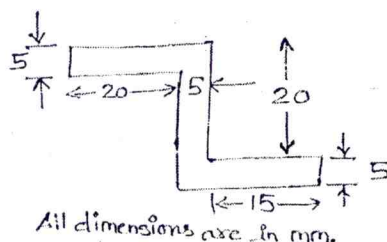 5
20
5
20
5
15
All dimensions are in mm.